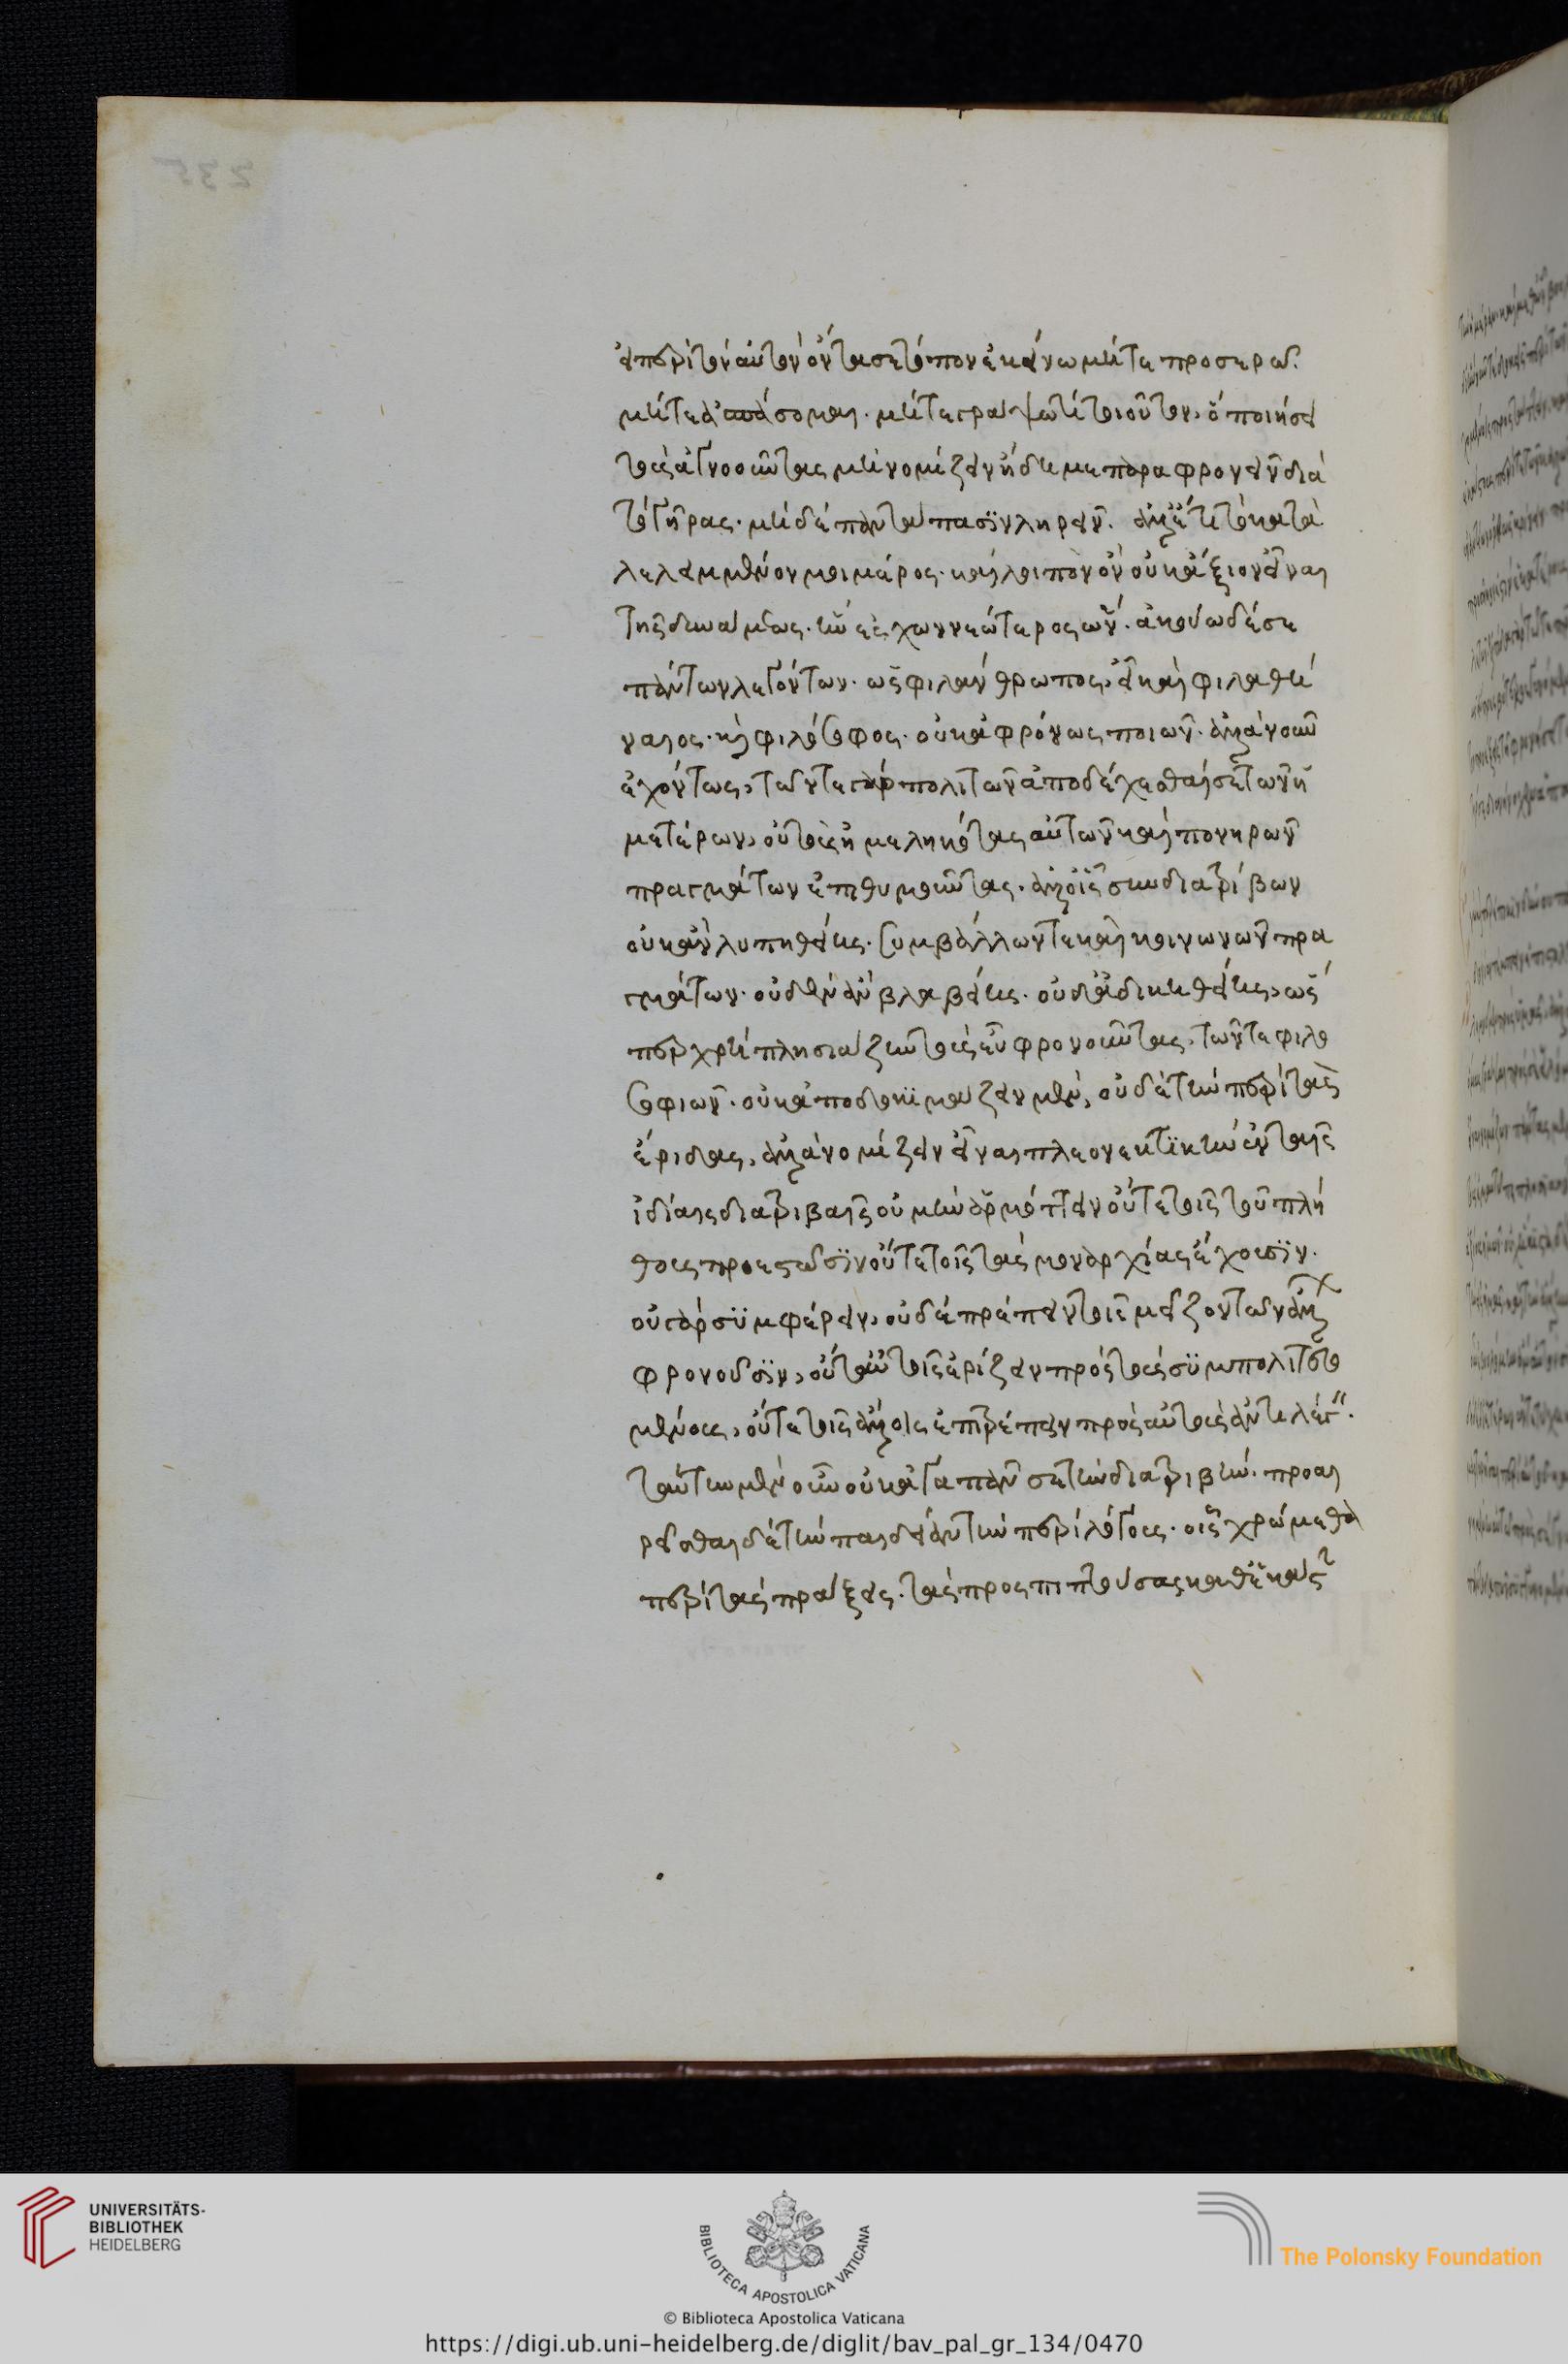 εἰ περὶ τὸν αὐτὸν ὄντα σε τόπον ἐκείνω μήτε προσερῶ.
μήτε ἀσπάσομαι. μήτε γράψω τί τοιοῦτον, ὃ ποιήσει
τοὺς ἀγνοοῦντας μὴ νομίζειν ἤδη με παραφρονεῖν διὰ
τὸ γῆρας. μὴ δὲ παντάπασϊν ληρεῖν. ἀλλ' ἔτι τὸ κατα
λελειμμένον μοι μέρος. καὶ λοιπὸν ὂν οὐκ ἄξιον εἶναι
τῆς δυνάμεως. ἣν ἔσχων νεώτερος ὤν. ἀκούω δέ σε
πάντων λεγόντων. ὡς φιλάνθρωπος, εἶ καὶ φιλαθή
ναιος. καὶ φιλόσοφος. οὐκ ἀφρόνως ποιῶν. ἀλλὰ νοῦν
ἐχόντως, τῶν τε γὰρ πολιτῶν ἀποδέχεσθαί σε τῶν ἡ
μετέρων, οὐ τοὺς ἠμεληκότας αὐτῶν καὶ πονηρῶν
πραγμάτων ἐπιθυμοῦντας. ἀλλ' οἷς συνδιατρίβων
οὐκ ἂν λυπηθείης. συμβάλλων τε καὶ κοινωνῶν πρα
γμάτων. οὐδὲν ἂν βλαβείης. οὐδ' ἀδικηθείης, ὥς
περ χρὴ πλησιάζειν τοὺς εὖ φρονοῦντας. τῶν τε φιλο
σοφιῶν. οὐκ ἀποδοκιμάζειν μὲν, οὐδὲ τὴν περὶ τὰς
ἔριδας, ἀλλὰ νομίζειν εἶναι πλεονεκτϊκὴν ἐν ταῖς
ἰδίαις διατριβαῖς οὐ μὴν ἁρμόττειν οὔτε τοῖς τοῦ πλή
θους προεστῶσϊν οὔτε τοῖς τὰς μοναρχίας ἔχουσϊν.
οὐ γὰρ σϋμφέρειν, οὐδὲ πρέπειν τοῖς μεῖζον τῶν ἄλλων
φρονοῦσϊν, οὔτ' αὐτοῖς ἐρίζειν πρὸς τοὺς σϋμπολιτευο
μένους, οὔτε τοῖς ἄλλοις ἐπιτρέπειν πρὸς αὐτοὺς ἀντιλέγειν.
ταύτην μὲν οὖν οὐκ ἀγαπᾶν σε τὴν διατριβήν. προαι
ρεῖσθαι δὲ τὴν παιδείαν τὴν περὶ λόγους. οἷς χρώμεθα
περὶ τὰς πράξεις. τὰς προςπιπτούσας καθ' ἑκάστην
235
UNIVERSITÄTS-
BIBLIOTHEK
HEIDELBERG
BIBLIOTECA APOSTOLICA VATICANA
© Biblioteca Apostolica Vaticana
The Polonsky Foundation
https://digi.ub.uni-heidelberg.de/diglit/bav_pal_gr_134/0470